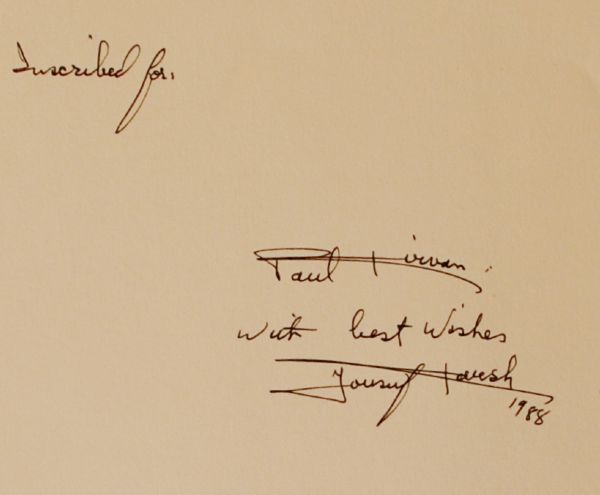 Inscribed for:
Paul Kirwan
With best Wishes
Yousuf Karsh
1988